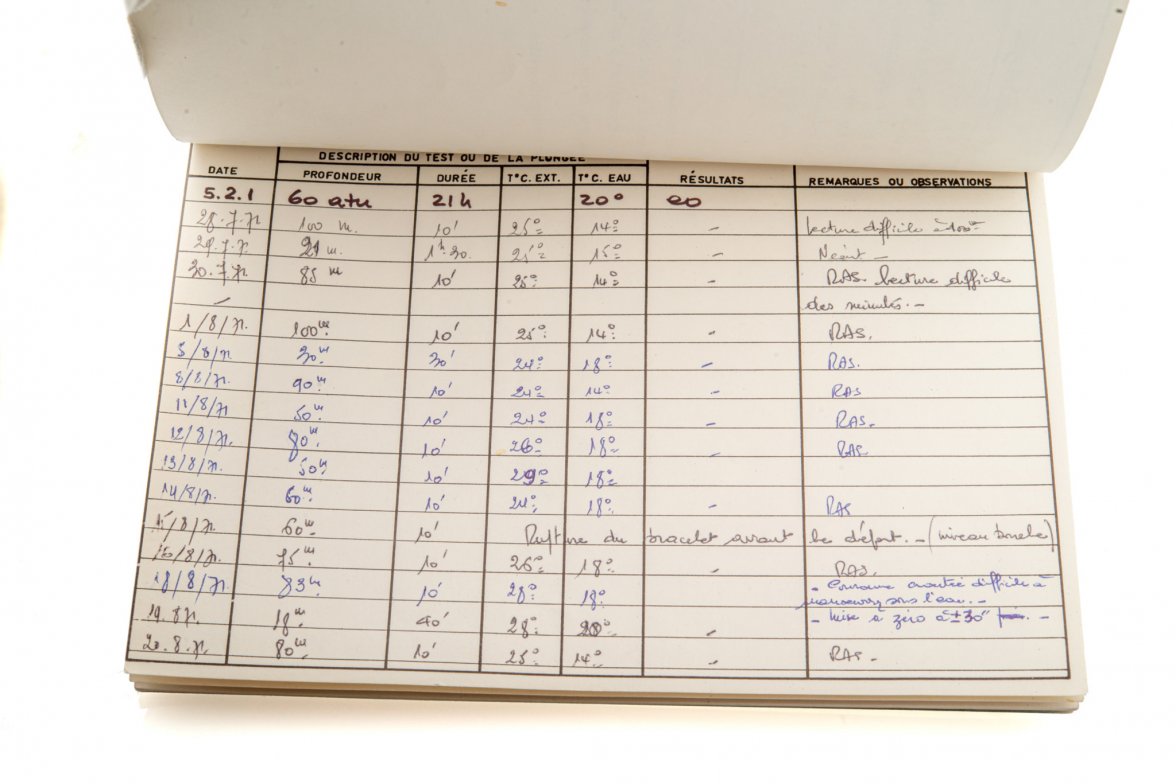 DESCRIPTION DU TEST OU DE LA PLONGÉE
DATE PROFONDEUR DURÉE T°C. EXT. T°C. EAU RÉSULTATS REMARQUES OU OBSERVATIONS
5.2.1 60 atu 21h 20°
28.7.71 100 m. 10' 25° 14° - Lecture difficile à 100m
29.7.71 21 m. 1h.30. 25° 15° - Néant -
30.7.71. 85 m 10' 25° 14° - RAS. Lecture difficile
- des minutes. -
1/8/71. 100m. 10' 25° 14° - RAS.
5/8/71. 30m. 30' 24° 18° - RAS.
8/8/71. 90m. 10' 24° 14° - RAS
11/8/71 50m. 10' 24° 18° - RAS.
12/8/71. 80m. 10' 26° 18° - RAS.
13/8/71. 50m. 10' 29° 18°
14/8/71. 60m. 10' 24° 18° - RAS
15/8/71 60m. 10' Rupture du bracelet avant le départ. - (niveau boucle)
16/8/71. 75m. 10' 26° 18° - RAS.
18/8/71. 83m. 10' 28° 18° - Couronne crantée difficile à
manoeuvrer sous l'eau. -
- Mise à zéro à ±30" -
19.8.71. 18m 40' 28° 20° -
20.8.71. 80m. 10' 25° 14° - RAS -